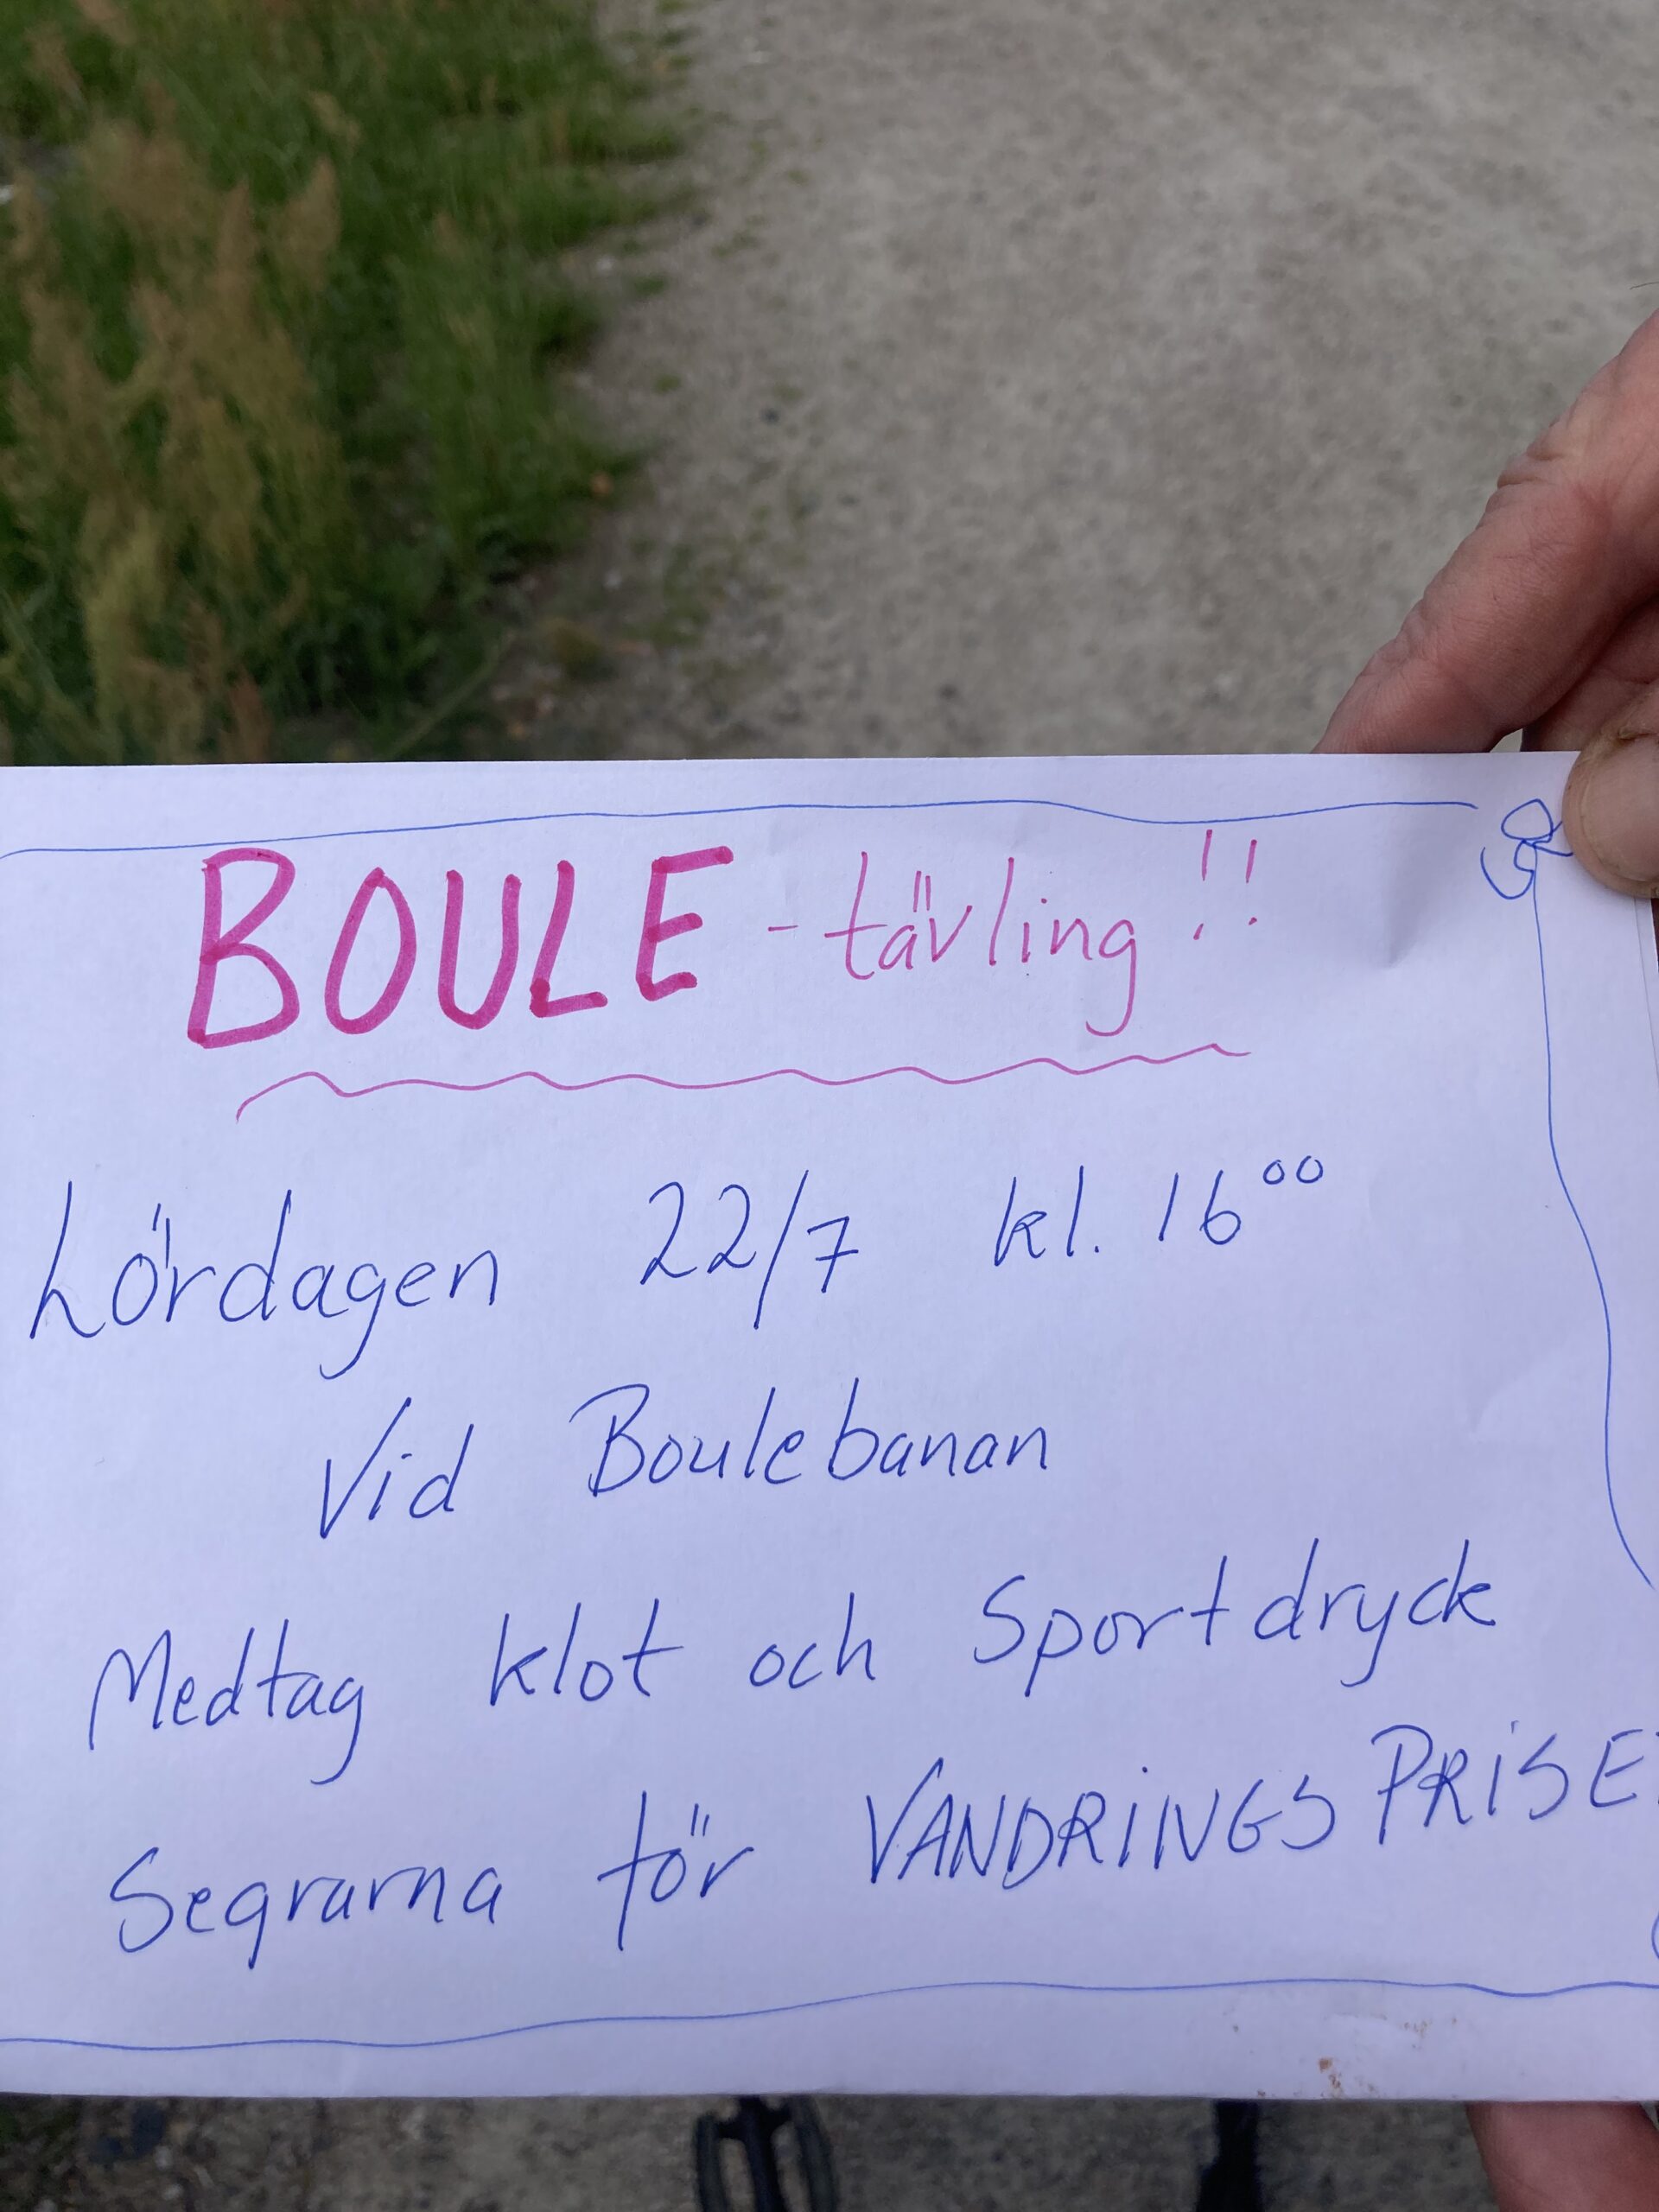 BOULE - tävling !!
Lördagen 22/7 kl. 16⁰⁰
Vid Boulebanan
Medtag klot och Sportdryck
Segrarna får VANDRINGSPRISE